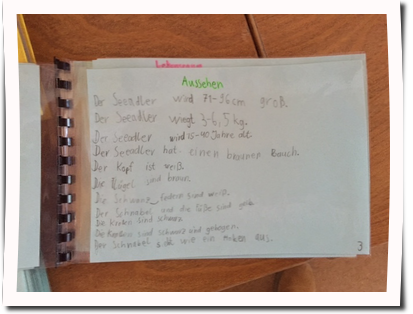 Aussehen
Der Seeadler wird 71-96cm groß.
Der Seeadler wiegt 3-6,5 kg.
Der Seeadler wird 25-40 Jahre alt.
Der Seeadler hat einen braunen Bauch.
Der Kopf ist weiß.
Die Flügel sind braun.
Die Schwanz_federn sind weiß.
Der Schnabel und die Füße sind gelb
Die Krallen sind schwarz.
Die Krallen sind schwarz und gebogen.
Der Schnabel sieht wie ein Haken aus.
3